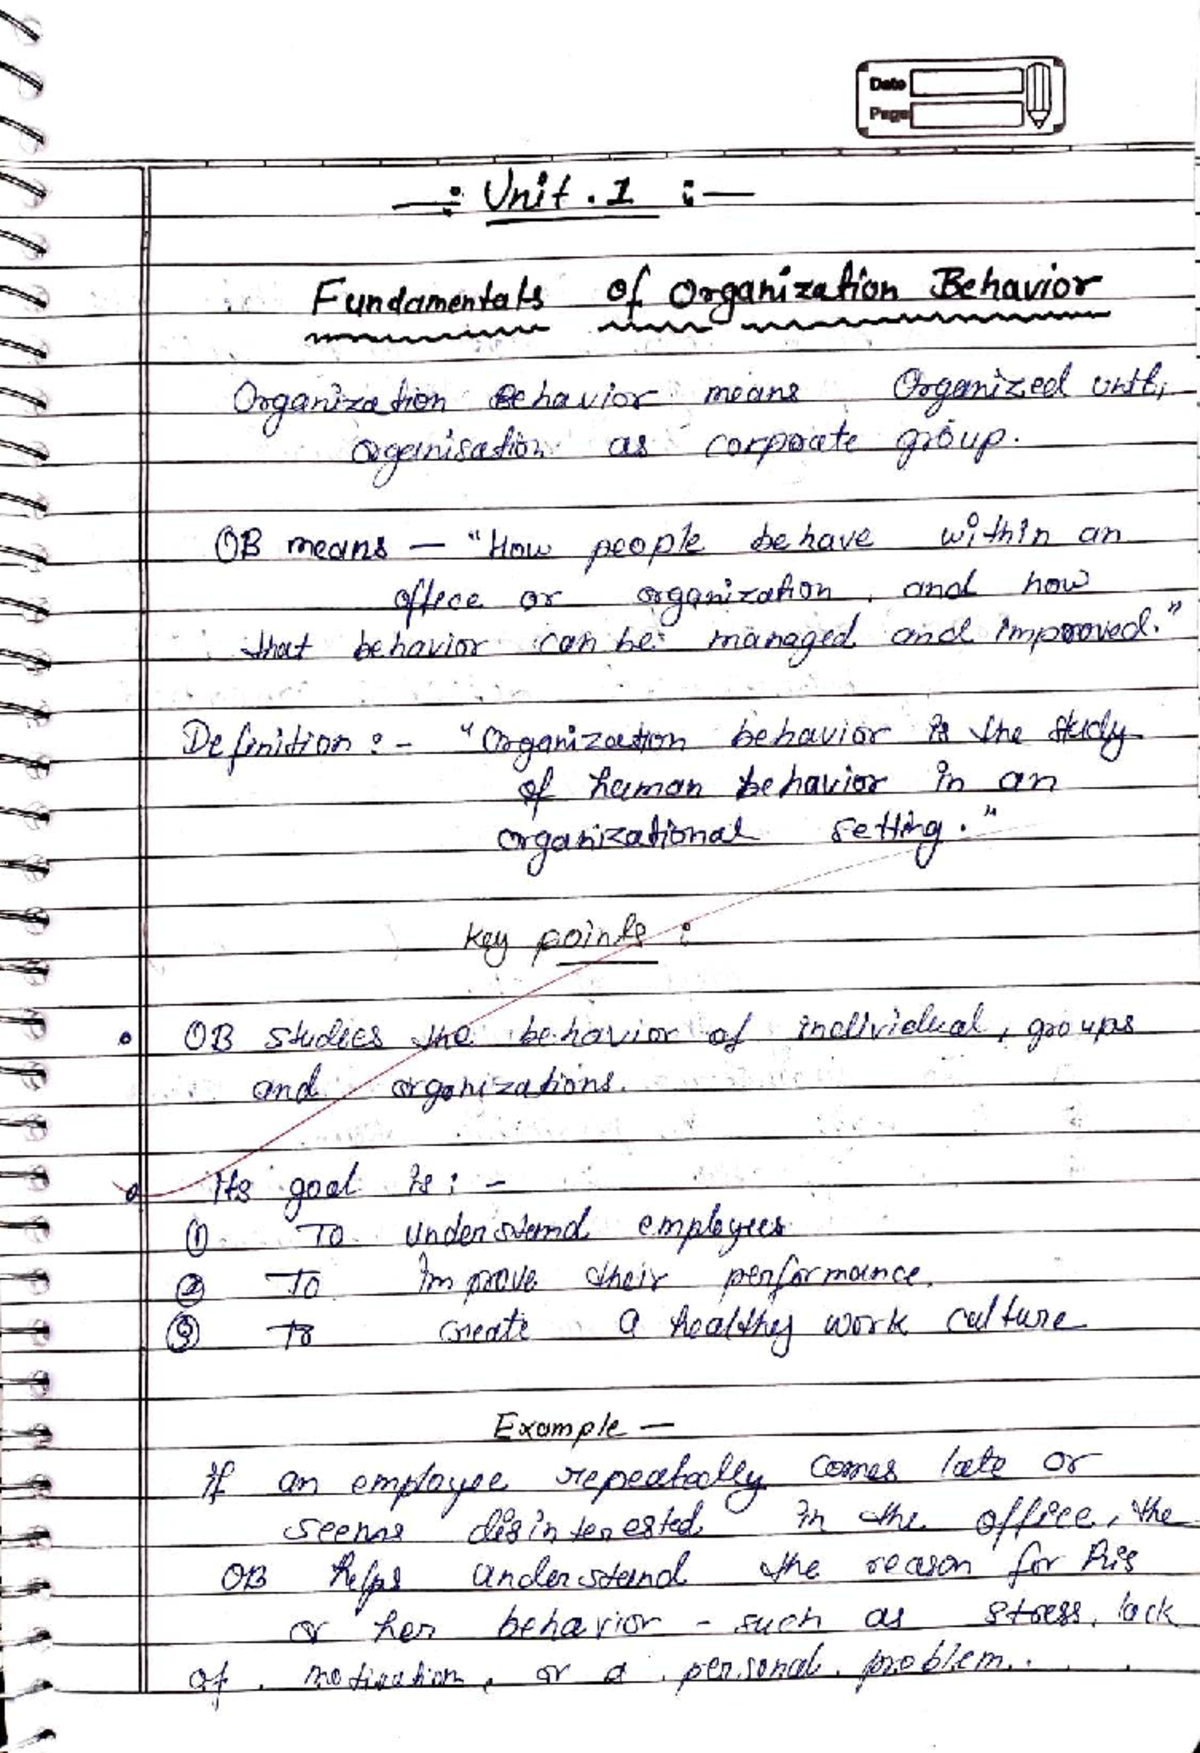 Date
Page
—: Unit . 1 :—
Fundamentals of Organization Behavior
Organization Behavior means Organized unit,
organisation as corporate group.
OB means — "How people behave within an
office or organization, and how
that behavior can be managed and improved."
Definition :- "Organization behavior is the study
of human behavior in an
organizational setting."
Key points :
• OB studies the behavior of individual, groups
and organizations.
• Its goal is : -
① To understand employees
② To Improve their performance.
③ To create a healthy work culture
Example —
If an employee repeatedly comes late or
seems disinterested in the office, the
OB helps understand the reason for his
or her behavior - such as stress, lack
of motivation, or a personal problem.